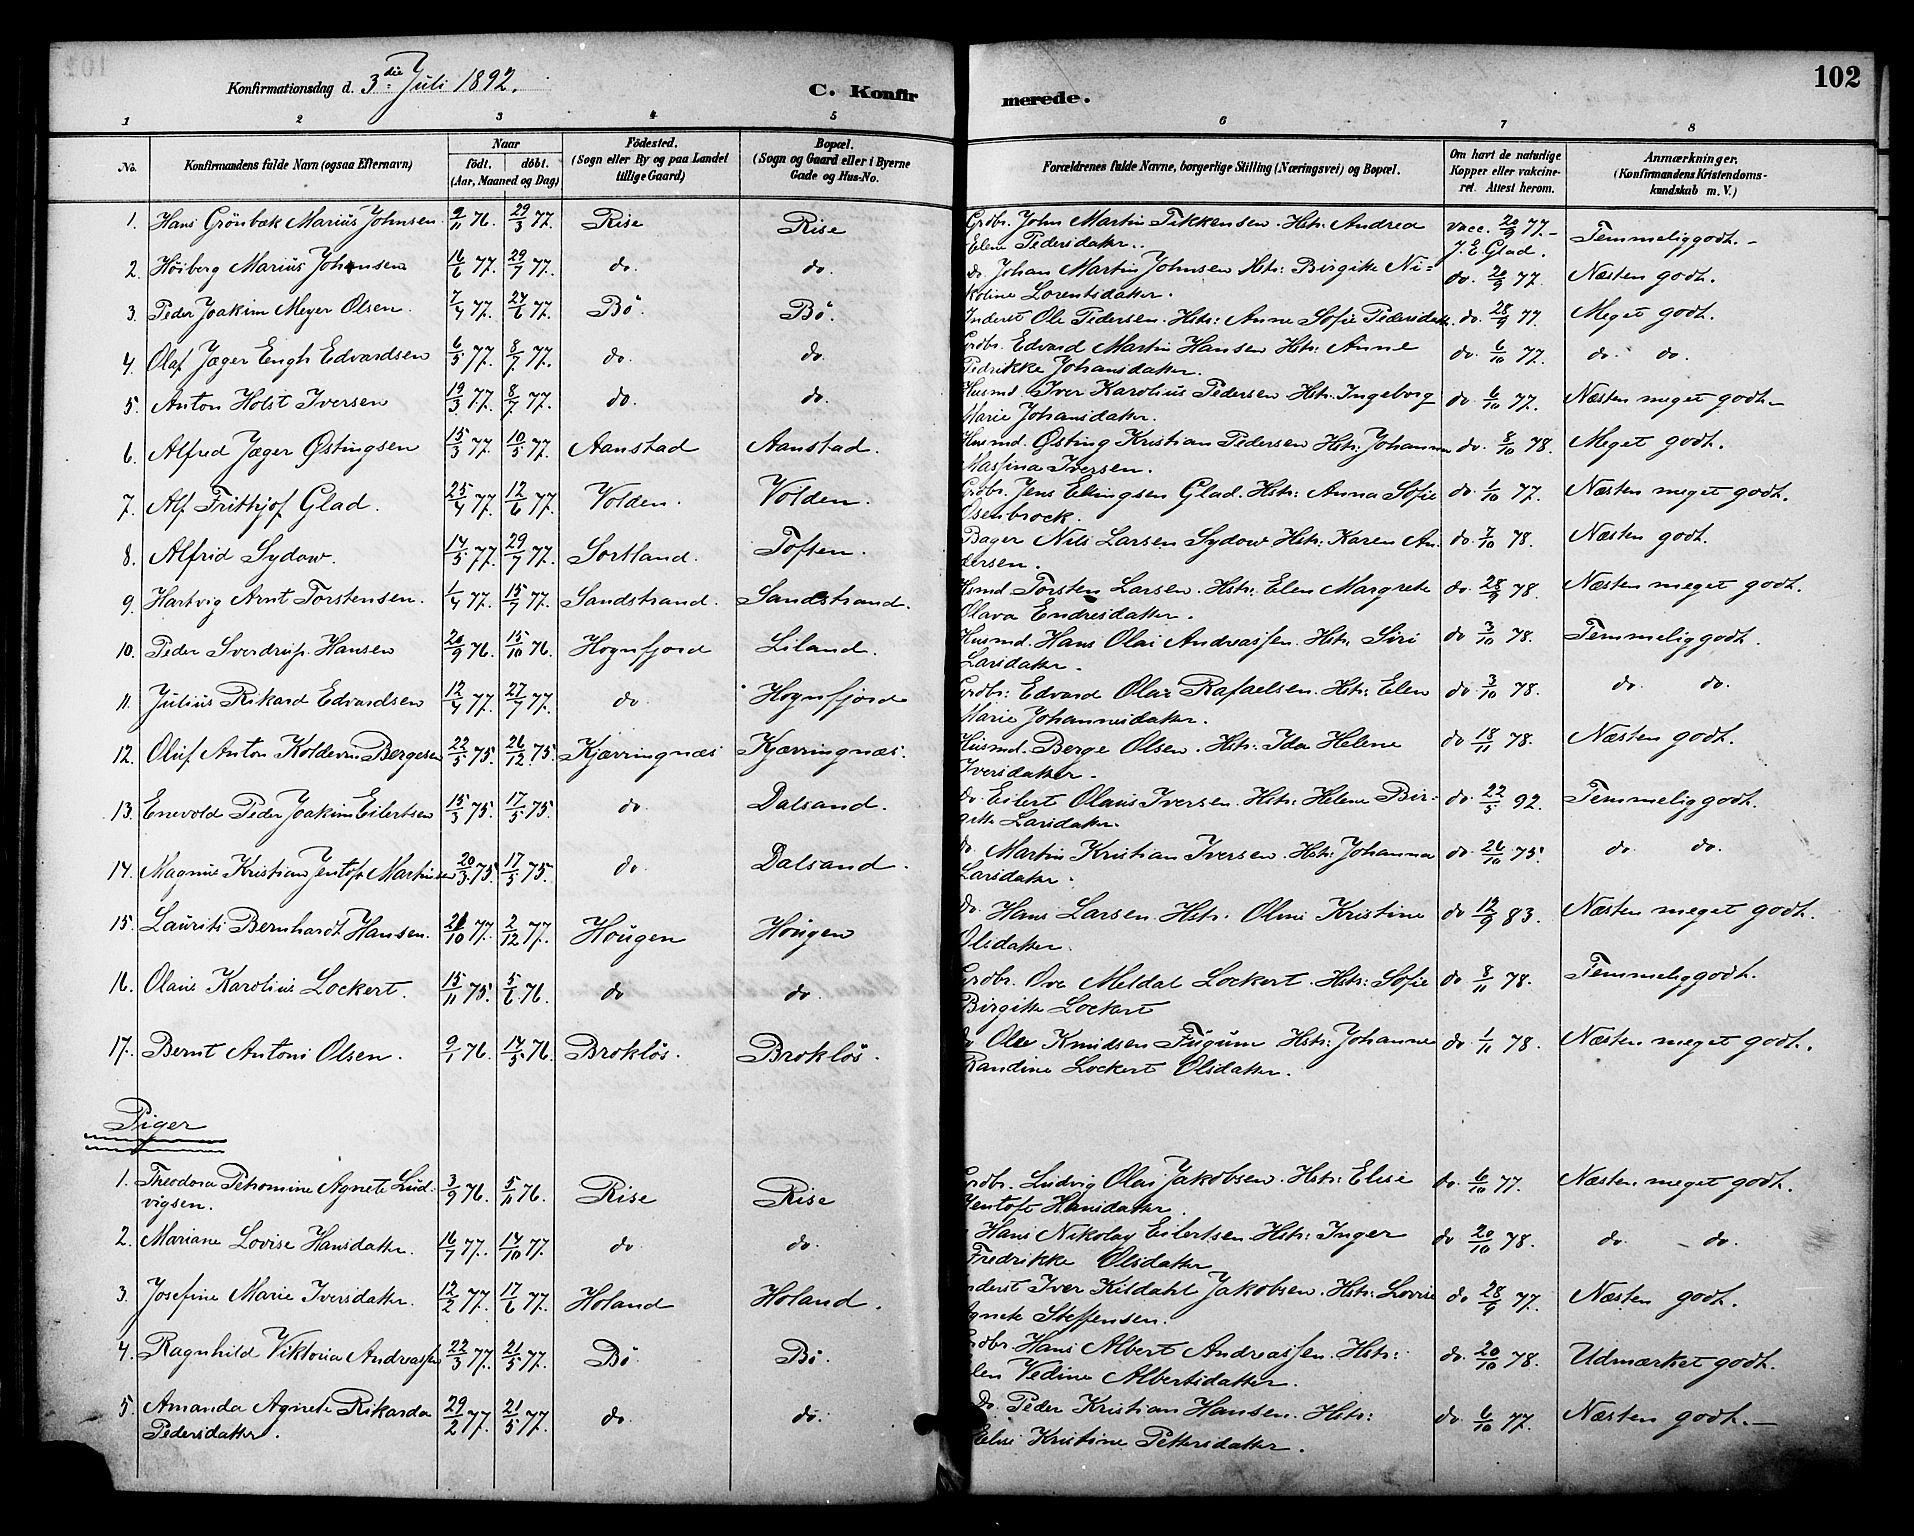 102
Konfirmationsdag d. 3die Juli 1892.
C. Konfirmerede.
1 2 3 4 5 6 7 8
No. Konfirmandens fulde Navn (ogsaa Efternavn) Naar födt. döbt. (Aar, Maaned og Dag) Födested. (Sogn eller By og paa Landet tillige Gaard) Bopæl. (Sogn og Gaard eller i Byerne Gade og Hus-No. Forældrenes fulde Navne, borgerlige Stilling (Næringsvei) og Bopæl. Om havt de naturlige Kopper eller vakcineret. Attest herom. Anmærkninger. (Konfirmandens Kristendomskundskab m. V.)
1. Hans Grönbæk Marius Johnsen 9/11 76. 29/3 77. Rise Rise Grdbr. John Martin Tikkensen. Hstr. Andrea vacc. 20/9 77.- Temmelig godt.-
Elene Pedersdatter. J. E. Glad.
2. Höiberg Marius Johansen 16/6 77. 29/7 77. do. do. do. Johan Martin Johnsen Hstr: Birgitte Ni- do. 20/9 77. Næsten godt.
koline Lorentsdatter.
3. Peder Joakim Meyer Olsen. 7/4 77. 24/6 77. Bö. Bö. Inderst Ole Pedersen. Hstr: Anne Sofie Pedersdatter. do. 28/9 77. Meget godt.
4. Olaf Jæger Engh Edvardsen 6/5 77. 8/7 77. do. do. Grdbr. Edvard Martin Hansen Hstr: Anne do. 6/10 77. do. do.
Fedrikke Johansdatter.
5. Anton Holst Iversen 19/3 77. 8/7 77. do. do. Husmd. Iver Karolius Pedersen Hstr. Ingeborg do. 6/10 77. Næsten meget godt.-
Marie Johansdatter.
6. Alfred Jæger Østingsen 15/3 77. 10/5 77. Aanstad Aanstad. Husmd. Østing Kristian Pedersen Hstr: Johanna do. 8/10 78. Meget godt.
Massina Iversen.
7. Alf Frithjof Glad. 25/4 77. 12/6 77. Volden. Volden. Grdbr. Jens Ellingsen Glad. Hstr: Anna Sofie do. 1/10 77. Næsten meget godt.
Osenbrock.
8. Alfrid Sydow. 14/5 77. 29/7 77. Sortland. Toften. Bager Nils Larsen Sydow Hstr: Karen An- do. 7/10 78. Næsten godt.
dersen.
9. Hartvig Arnt Torstensen. 1/4 77. 15/7 77. Sandstrand. Sandstrand. Hsmd Torsten Larsen. Hstr: Elen Margrete do. 28/9 78. Næsten meget godt.
Olava Endresdatter.
10. Peder Sverdrup. Hansen 20/9 76. 15/10 76. Hognfjord Liland. Husmd. Hans Olai Andreassen. Hstr. Siri do 3/10 78. Temmelig godt.
Larsdatter.
11. Julius Rikard Edvardsen 12/4 77. 27/7 77. do. Hognfjord Grdbr: Edvard Olai Rafaelsen. Hstr: Elen do 3/10 78. do. do.
Marie Johannesdatter.
12. Oluf Anton Koldevin Bergesen 22/5 75. 26/12 75. Kjærringnæs Kjærringnæs. Husmd. Berge Olsen. Hstr: Ida Helene do 18/11 78. Næsten godt.
Iversdatter.
13. Enevold Peder Joakim Eilertsen 15/3 75. 17/5 75. do. Dalsand. do. Eilert Olaus Iversen. Hstr: Helene Bir- do. 22/5 92. Temmelig godt.
gitte Larsdatter.
14. Magnus Kristian Jentoft Martinsen 20/3 75. 17/5 75. do. Dalsand. do. Martin Kristian Iversen. Hstr: Johanna do. 26/10 75. do. do.
Larsdatter.
15. Laurits Bernhardt Hansen. 21/10 77. 2/12 77. Hougen Hougen do. Hans Larsen. Hstr: Oline Kristine do 12/9 83. Næsten meget godt.
Olsdatter.
16. Olaus Karolius Lockert. 15/11 75. 5/6 76. do do. Grdbr. Ove Meldal Lockert. Hstr: Sofie do 8/11 78. Temmelig godt.
Birgitte Lockert
17. Bernt Antoni Olsen. 9/1 76. 14/5 76. Broklös. Broklös. do Ole Knudsen Hstr: Johanne do. 1/11 78. Næsten meget godt.
Randine Lockert Olsdatter.
Piger
1. Theodora Petromine Agnete Lud- 3/9 76. 5/11 76. Rise Rise Grdbr. Ludvig Olai Jakobsen. Hstr: Elise do. 6/10 77. Næsten meget godt.
vigsen. Jentoft Hansdatter.
2. Mariane Lovise Hansdatter. 16/7 77. 14/10 77. do. do. Hans Nikolay Eilertsen. Hstr: Inger do 20/10 78. do. - do.
Fredrikke Olsdatter
3. Josefine Marie Iversdatter. 12/2 77. 17/6 77. Holand Holand. Inderst Iver Kildahl Jakobsen. Hstr: Lovise do 28/9 77. Næsten godt.
Agnete Steffensen.
4. Ragnhild Viktoria Andreassen 22/3 77. 21/5 77. Bö. Bö. Grdbr. Hans Albert Andreassen. Hstr: do. 20/10 78. Udmærket godt.
Elen Vedine Albertsdatter.
5. Amanda Agnete Rikarda 29/2 77. 21/5 77. do do. Do. Peder Kristian Hansen. Hstr: do. 6/10 77. Næsten godt.-
Pedersdatter. Elise Kristine Pettersdatter.